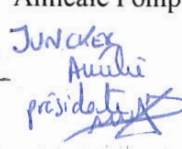 Amicale Pomp
JUNCKER
Aurélie
présidente